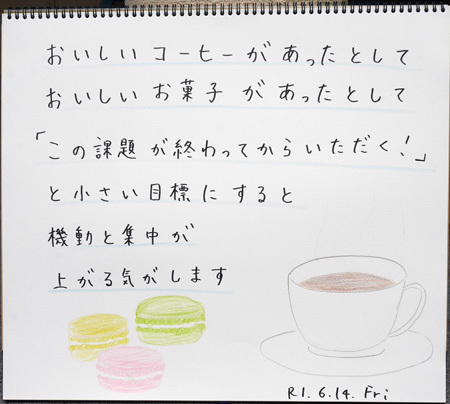 おいしいコーヒーがあったとして
おいしいお菓子があったとして
「この課題が終わってからいただく！」
と小さい目標にすると
機動と集中が
上がる気がします
R1.6.14.Fri